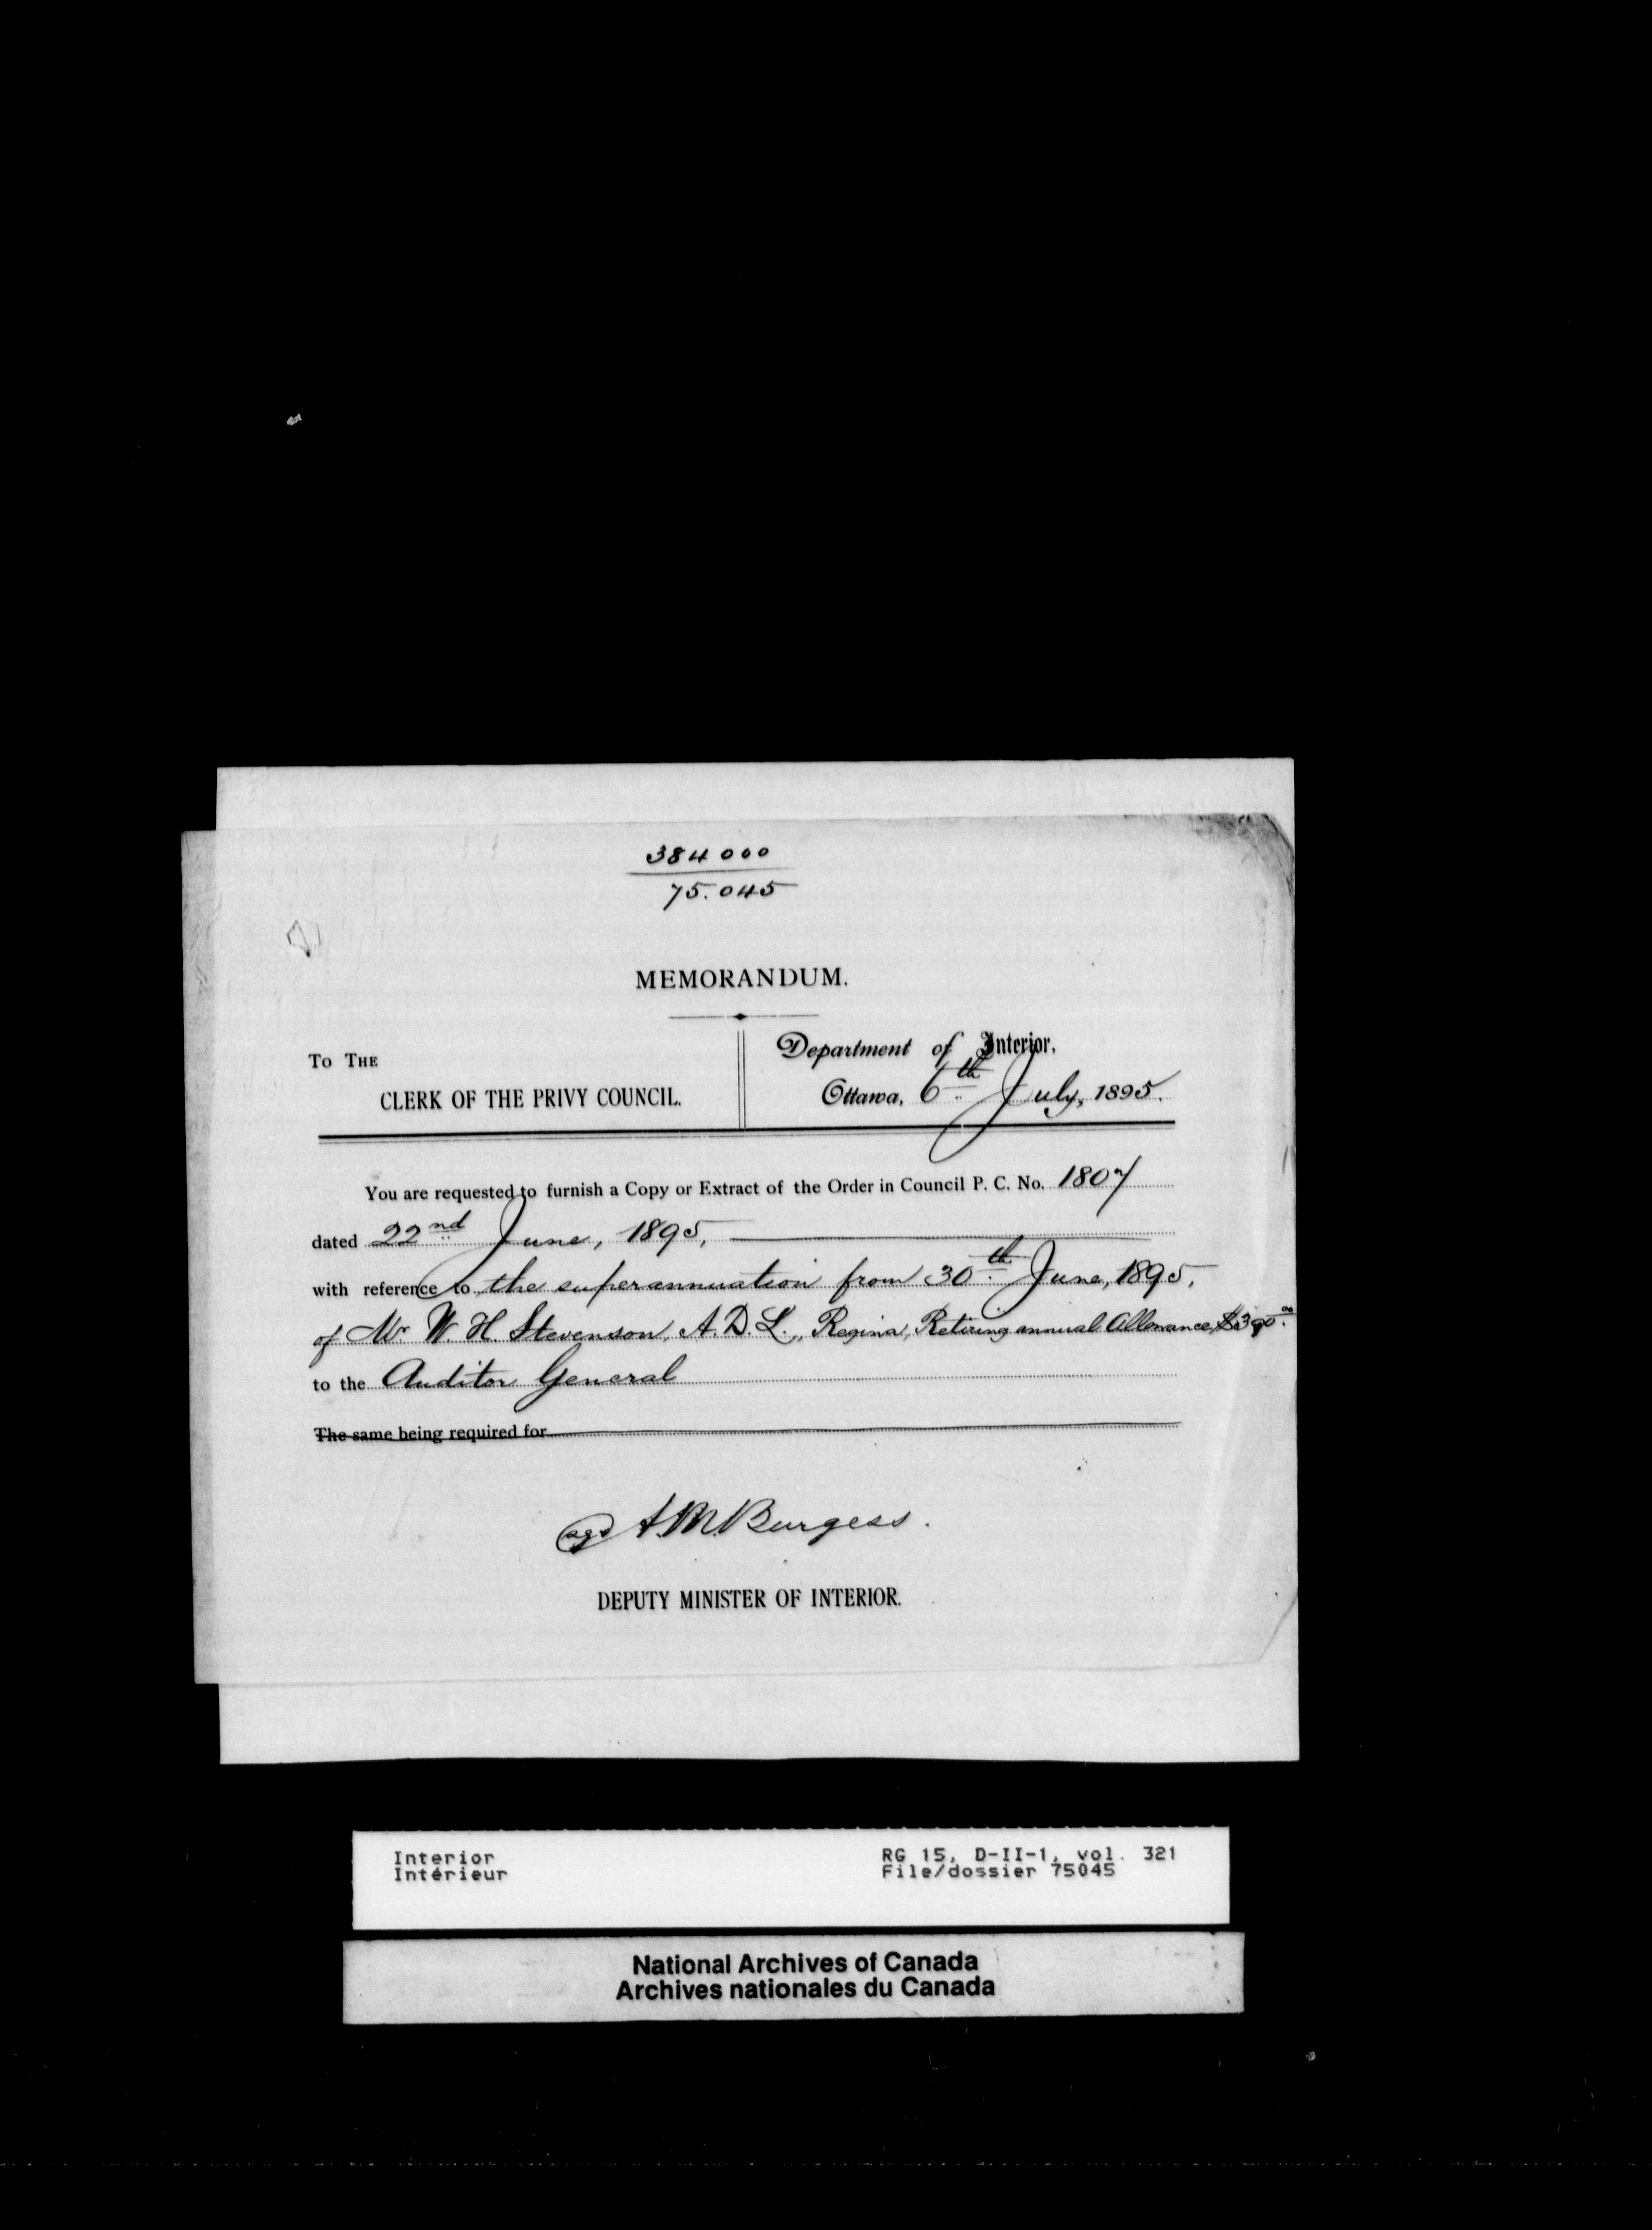 384000
75.045
MEMORANDUM.
TO THE
CLERK OF THE PRIVY COUNCIL.
Department of Interior,
Ottawa, 6th July, 1895.
You are requested to furnish a Copy or Extract of the Order in Council P. C. No. 1807
dated 22nd June, 1895,
with reference to the superannuation from 30th June, 1895,
of Mr W. H. Stevenson, A. D. L., Regina, Retiring annual Allowance, $390.00
to the Auditor General
The same being required for
sgd A. M. Burgess.
DEPUTY MINISTER OF INTERIOR.
Interior
Intérieur
RG 15, D-II-1, vol. 321
File/dossier 75045
National Archives of Canada
Archives nationales du Canada